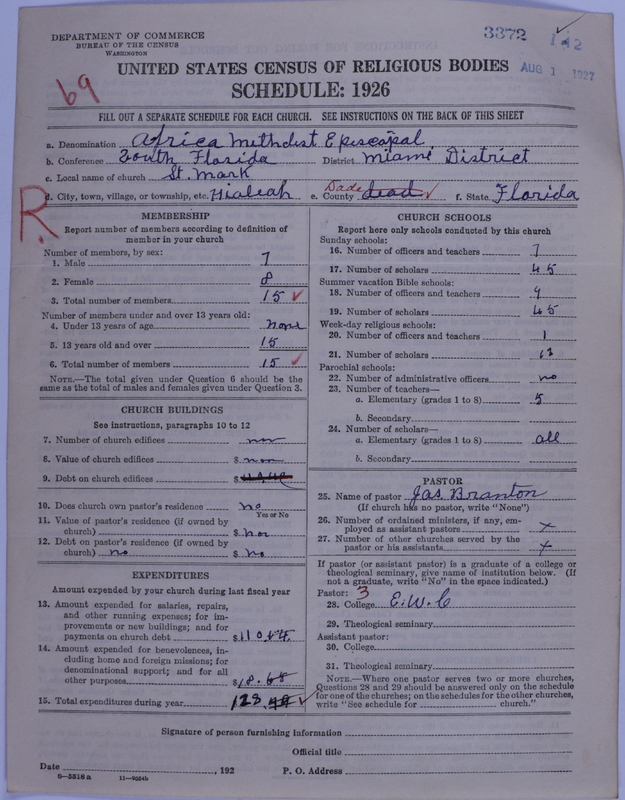 DEPARTMENT OF COMMERCE
BUREAU OF THE CENSUS
WASHINGTON
3372
AUG 1 1927
69
UNITED STATES CENSUS OF RELIGIOUS BODIES
SCHEDULE: 1926
FILL OUT A SEPARATE SCHEDULE FOR EACH CHURCH. SEE INSTRUCTIONS ON THE BACK OF THIS SHEET
a. Denomination Africa Methdist Episcopal
b. Conference South Florida District Miami District
c. Local name of church St. Mark
R.
d. City, town, village, or township, etc. Hialeah e. County Dade dead f. State Florida
MEMBERSHIP
Report number of members according to definition of
member in your church
Number of members, by sex:
1. Male 7
2. Female 8
3. Total number of members 15 ✓
Number of members under and over 13 years old:
4. Under 13 years of age none
5. 13 years old and over 15
6. Total number of members 15 ✓
NOTE.—The total given under Question 6 should be the
same as the total of males and females given under Question 3.
CHURCH BUILDINGS
See instructions, paragraphs 10 to 12
7. Number of church edifices
8. Value of church edifices $
9. Debt on church edifices $
10. Does church own pastor's residence no
Yes or No
11. Value of pastor's residence (if owned by
church) $
12. Debt on pastor's residence (if owned by
church) no $ no
EXPENDITURES
Amount expended by your church during last fiscal year
13. Amount expended for salaries, repairs,
and other running expenses; for im-
provements or new buildings; and for
payments on church debt $
14. Amount expended for benevolences, in-
cluding home and foreign missions; for
denominational support; and for all
other purposes $18.68
15. Total expenditures during year 128. ✓
CHURCH SCHOOLS
Report here only schools conducted by this church
Sunday schools:
16. Number of officers and teachers 7
17. Number of scholars 45
Summer vacation Bible schools:
18. Number of officers and teachers
19. Number of scholars 45
Week-day religious schools:
20. Number of officers and teachers 1
21. Number of scholars
Parochial schools:
22. Number of administrative officers no
23. Number of teachers—
a. Elementary (grades 1 to 8) 5
b. Secondary
24. Number of scholars—
a. Elementary (grades 1 to 8) all
b. Secondary
PASTOR
25. Name of pastor Jas. Branton
(If church has no pastor, write "None")
26. Number of ordained ministers, if any, em-
ployed as assistant pastors x
27. Number of other churches served by the
pastor or his assistants x
If pastor (or assistant pastor) is a graduate of a college or
theological seminary, give name of institution below. (If
not a graduate, write "No" in the space indicated.)
Pastor: 3
28. College E. W. C
29. Theological seminary
Assistant pastor:
30. College
31. Theological seminary
NOTE.—Where one pastor serves two or more churches,
Questions 28 and 29 should be answered only on the schedule
for one of the churches; on the schedules for the other churches,
write "See schedule for church."
Signature of person furnishing information
Official title
Date , 192 P. O. Address
8—5518 a 11—9054b